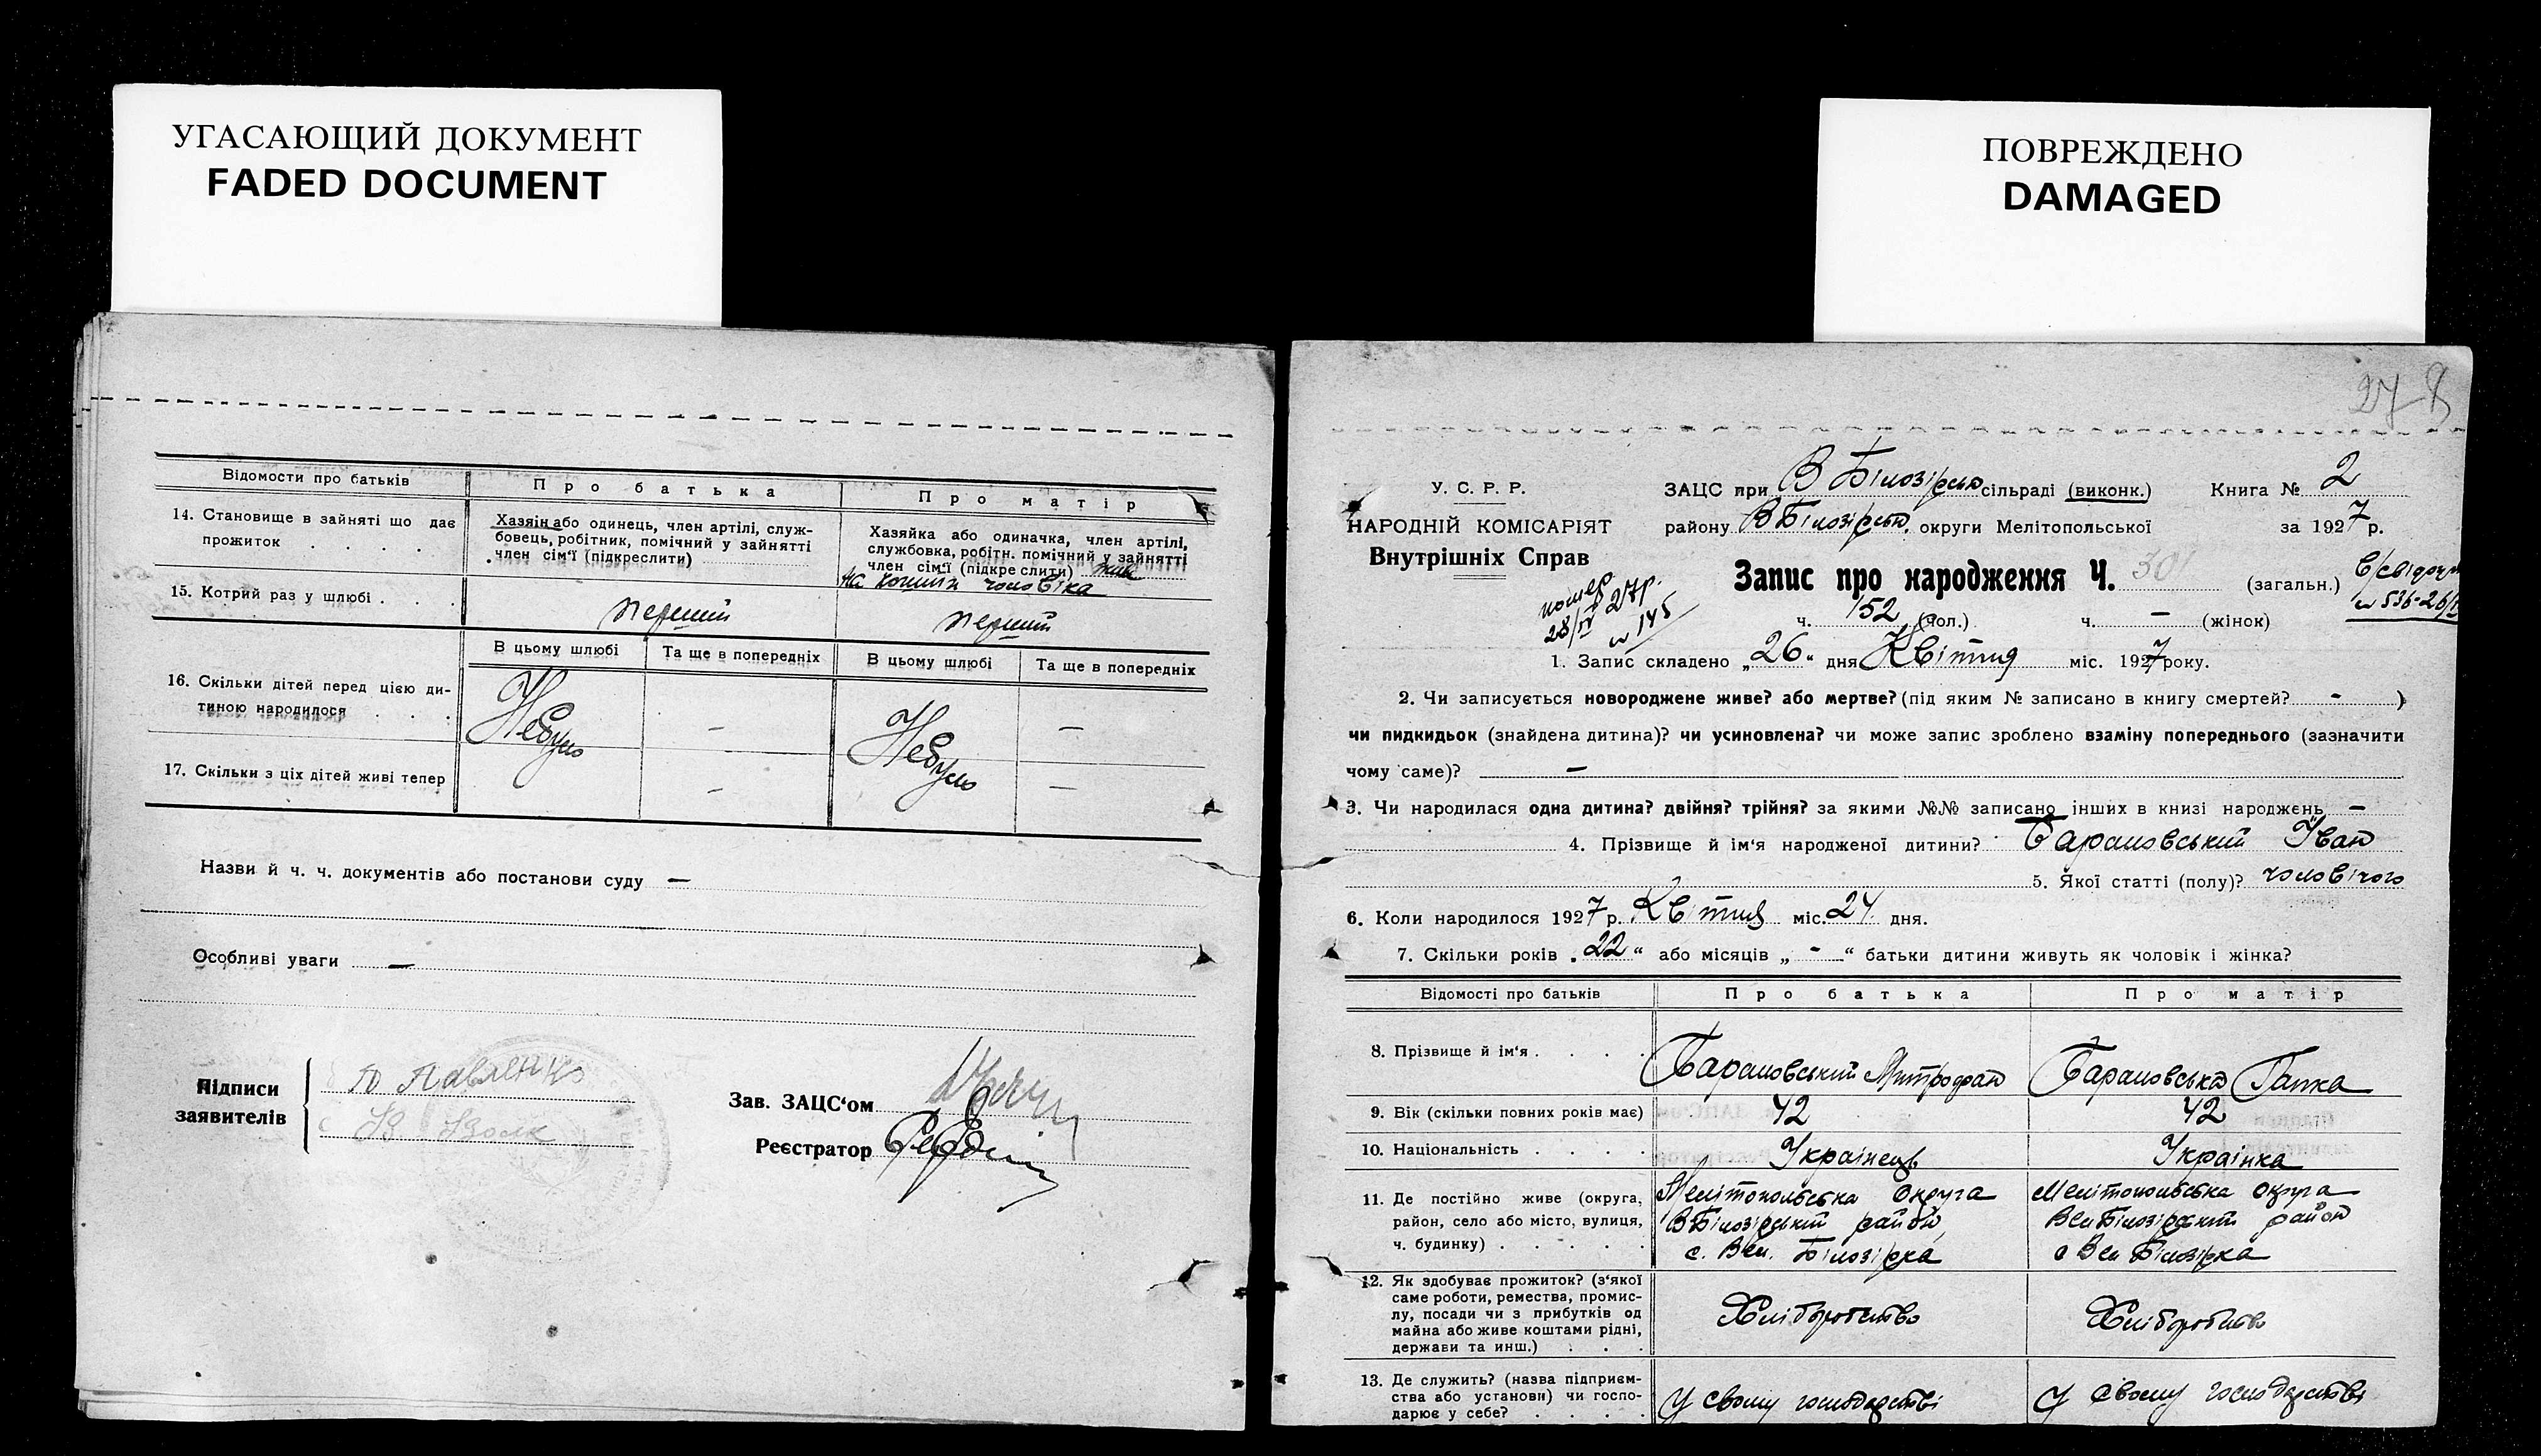 УГАСАЮЩИЙ ДОКУМЕНТ
FADED DOCUMENT
ПОВРЕЖДЕНО
DAMAGED
Відомости про батьків
Про батька
Про матір
14. Становище в зайняті що дає
прожиток . . . .
Хазяін або одинець, член артілі, служ-
бовець, робітник, помічний у зайнятті
член сім'ї (підкреслити)
Хазяйка або одиначка, член артілі,
службовка, робітн. помічний у зайнятті
член сім'ї (підкреслити) живе
на кошти чоловіка
15. Котрий раз у шлюбі . . .
перший
перший
В цьому шлюбі
Та ще в попередніх
В цьому шлюбі
Та ще в попередніх
16. Скільки дітей перед цією ди-
тиною народилося . . .
Небуло
—
Небуло
—
17. Скільки з ціх дітей живі тепер
—
—
Назви й ч. ч. документів або постанови суду —
Особливі уваги —
Підписи
заявителів
Павленко
Зав. ЗАЦС'ом
Реєстратор
27 8
У. С. Р. Р.
НАРОДНІЙ КОМІСАРІЯТ
Внутрішніх Справ
ЗАЦС при В Білозірськ сільраді (виконк.) Книга № 2
району ВБілозірськ. округи Мелітопольської за 1927 р.
Запис про народження Ч. 301 (загальн.)
помер
28/IV 27р.
№ 145
ч. 152 (чол.) ч. — (жінок)
1. Запис складено „26“ дня Квітня міс. 1927 року.
2. Чи записується новороджене живе? або мертве? (під яким № записано в книгу смертей? - )
чи пидкидьок (знайдена дитина)? чи усиновлена? чи може запис зроблено взаміну попереднього (зазначити
чому саме)? —
3. Чи народилася одна дитина? двійня? трійня? за якими №№ записано інших в книзі народжень —
4. Прізвище й ім'я народженої дитини? Барановський Іван
5. Якої статті (полу)? чоловічого
6. Коли народилося 1927 р. Квітня міс. 24 дня.
7. Скільки років „22“ або місяців „ - “ батьки дитини живуть як чоловік і жінка?
Відомості про батьків
Про батька
Про матір
8. Прізвище й ім'я . . . .
Барановський Митрофан
Барановська Ганка
9. Вік (скільки повних років має)
42
42
10. Національність . . . .
Українець
Українка
11. Де постійно живе (округа,
район, село або місто, вулиця,
ч. будинку) . . . . .
Мелітопольська Округа
ВБілозірський район,
с. Вел. Білозірка
Мелітопольська округа
ВелБілозірський район
с Вел Білозірка
12. Як здобуває прожиток? (з'якої
саме роботи, ремества, промис-
лу, посади чи з прибутків од
майна або живе коштами рідні,
держави та инш.) . . .
Хліборобство
Хліборобство
13. Де служить? (назва підприєм-
ства або установи) чи госпо-
дарює у себе? . . . .
У свому господарстві
У свому господарстві